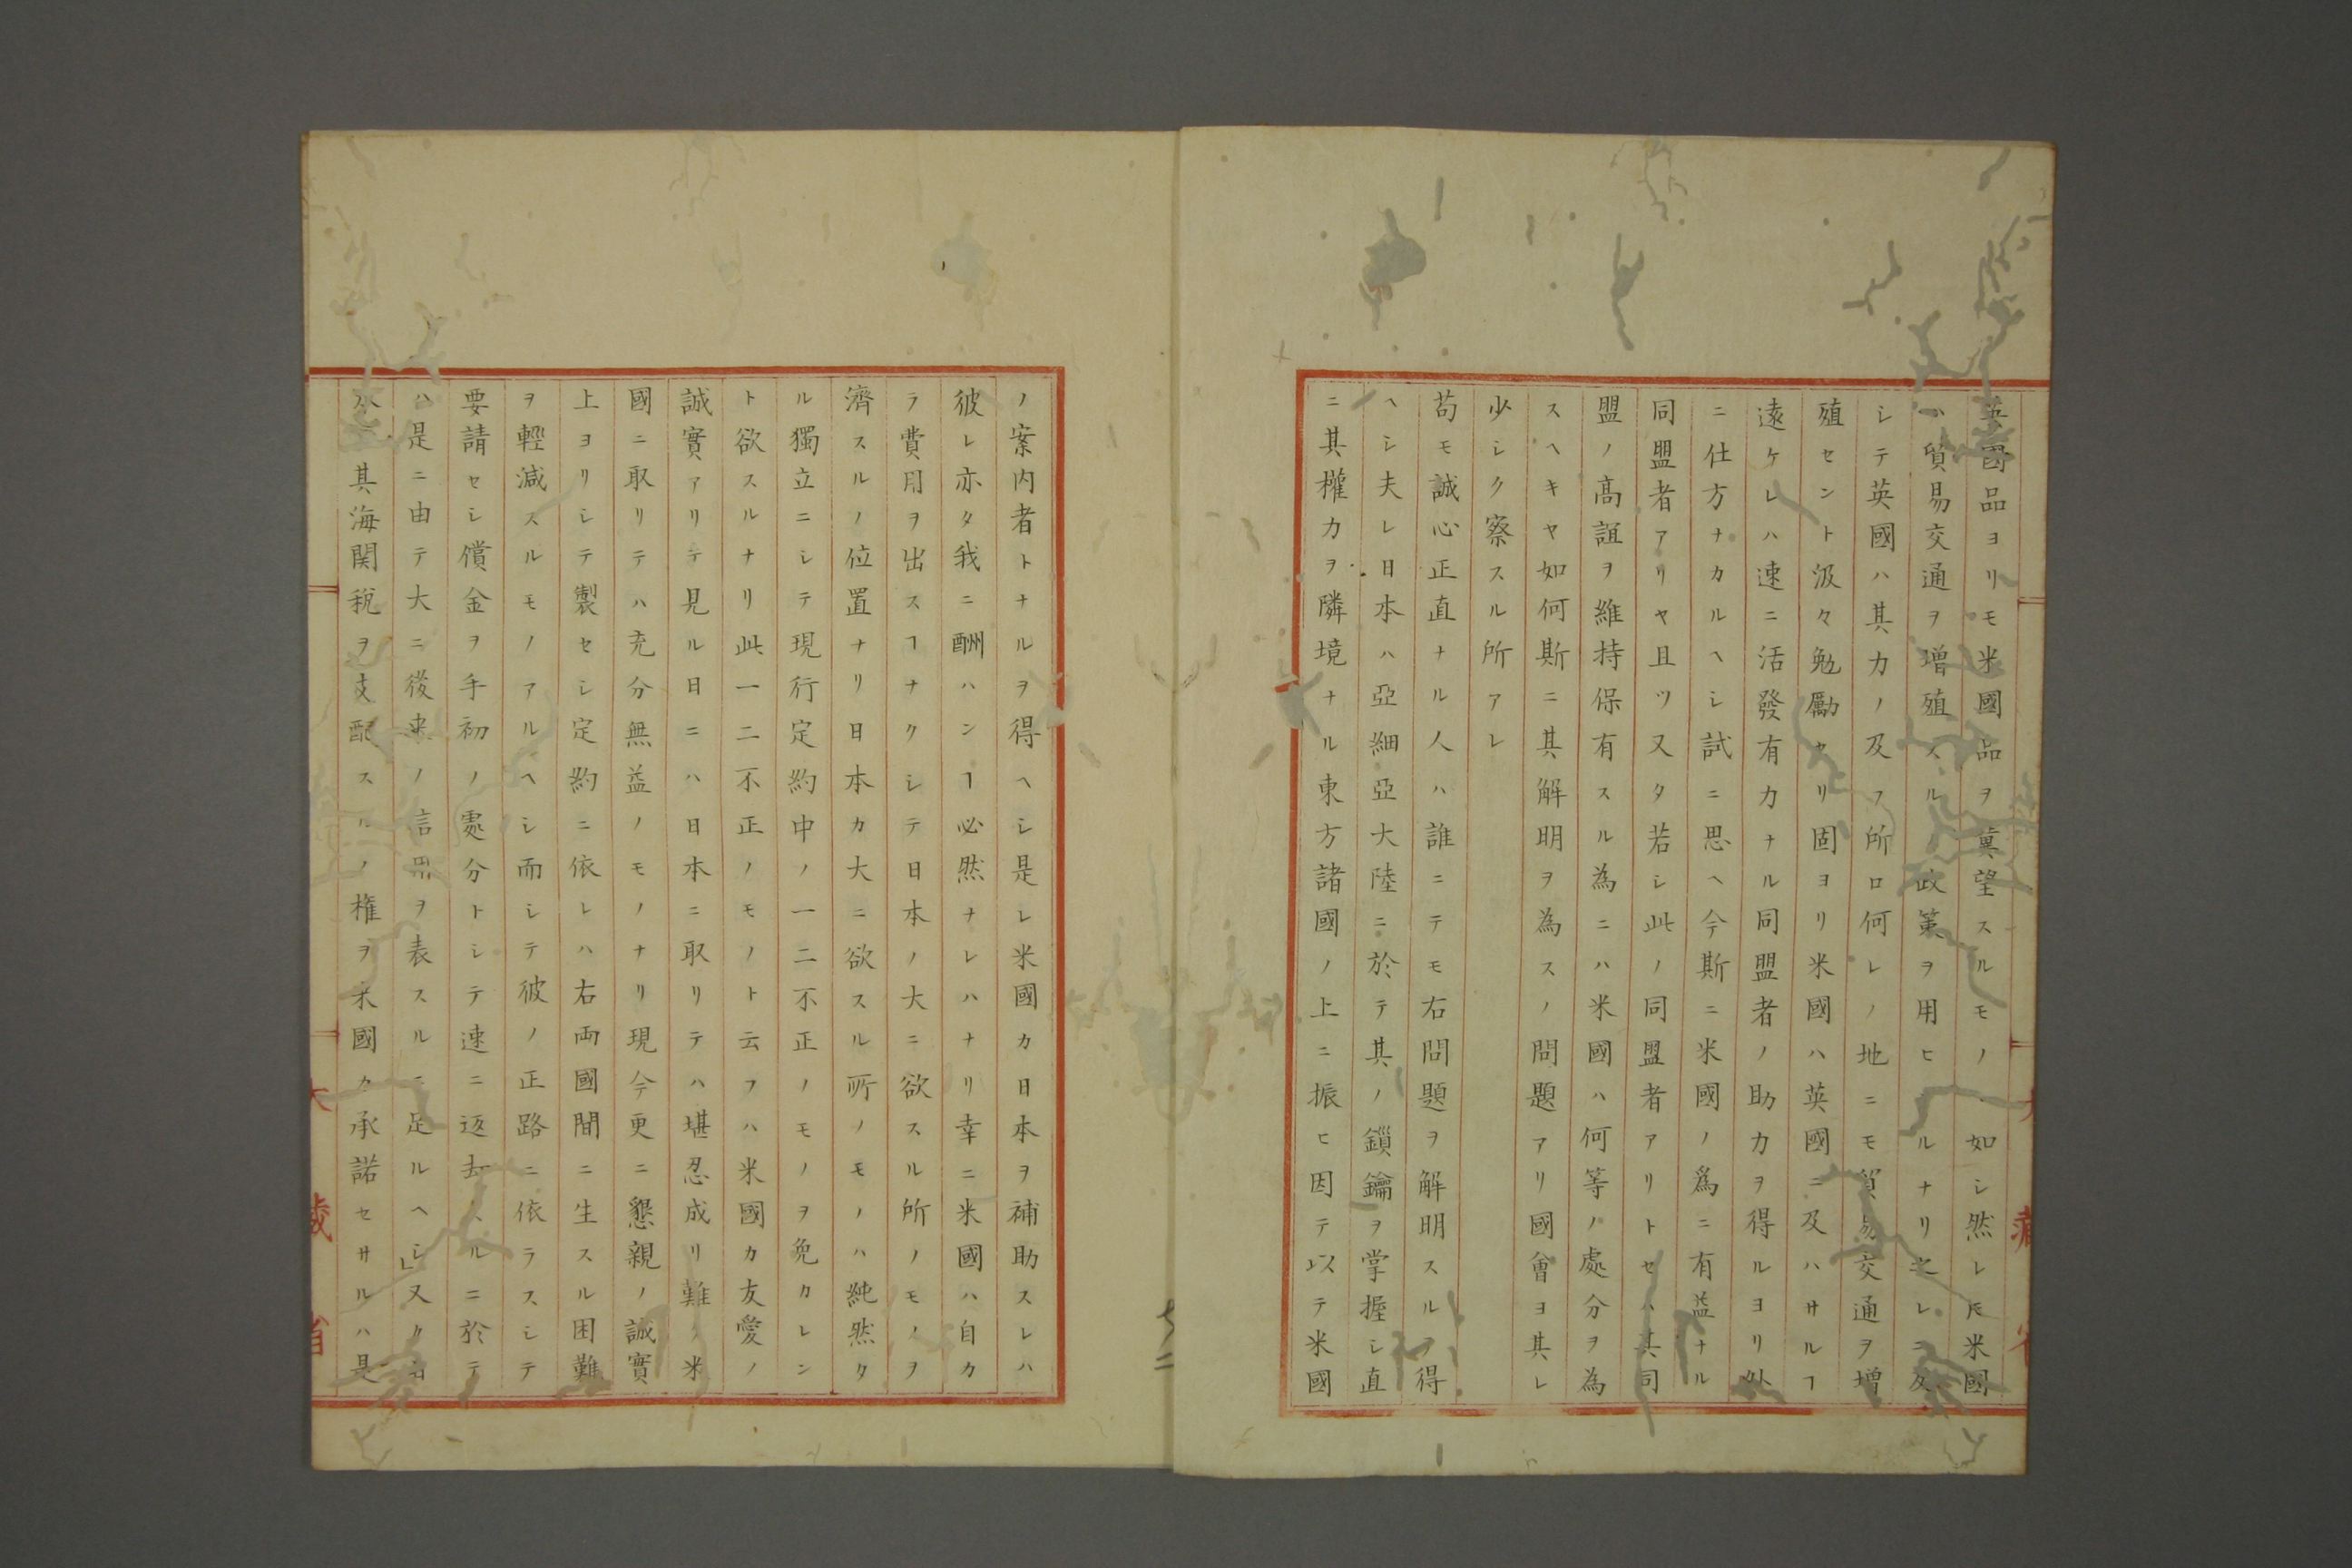 英國品ヨリモ米國品ヲ冀望スルモノヽ如シ然レ𪜈米國
ハ貿易交通ヲ增殖スルノ政策ヲ用ヒサルナリ之レニ反
シテ英國ハ其力ノ及フ所ロ何レノ地ニモ貿易交通ヲ增
殖セント汲々勉勵セリ固ヨリ米國ハ英國ニ及ハサルヿ
遠ケレハ速ニ活發有力ナル同盟者ノ助力ヲ得ルヨリ外
ニ仕方ナカルヘシ試ニ思ヘ今斯ニ米國ノ爲ニ有益ナル
同盟者アリヤ且ツ又タ若シ此ノ同盟者アリトセハ其同
盟ノ高誼ヲ維持保有スル為ニハ米國ハ何等ノ處分ヲ為
スヘキヤ如何斯ニ其解明ヲ為スノ問題アリ國會ヨ其レ
少シク察スル所アレ
苟モ誠心正直ナル人ハ誰ニテモ右問題ヲ解明スルヲ得
ヘシ夫レ日本ハ亞細亞大陸ニ於テ其ノ鎖鑰ヲ掌握シ直
ニ其權力ヲ隣境ナル東方諸國ノ上ニ振ヒ因テ以テ米國
ノ案内者トナルヲ得ヘシ是レ米國カ日本ヲ補助スレハ
彼レ亦タ我ニ酬ハンヿ必然ナレハナリ幸ニ米國ハ自カ
ラ費用ヲ出スヿナクシテ日本ノ大ニ欲スル所ノモノヲ
濟スルノ位置ナリ日本カ大ニ欲スル所ノモノハ純然タ
ル獨立ニシテ現行定約中ノ一二不正ノモノヲ免カレン
ト欲スルナリ此一二不正ノモノト云フハ米國カ友愛ノ
誠實アリテ見ル日ニハ日本ニ取リテハ堪忍成リ難ク米
國ニ取リテハ充分無益ノモノナリ現今更ニ懇親ノ誠實
上ヨリシテ製セシ定約ニ依レハ右両國間ニ生スル困難
ヲ輕減スルモノアルヘシ而シテ彼ノ正路ニ依ラスシテ
要請セシ償金ヲ手初ノ處分トシテ速ニ返却スルニ於テ
ハ是ニ由テ大ニ後来ノ言㒵ヲ表スルニ足ルヘシ」又タ日
本ニ其海関税ヲ支配スルノ権ヲ米國カ承諾セサルハ是
七ノ二
大藏省
大藏省